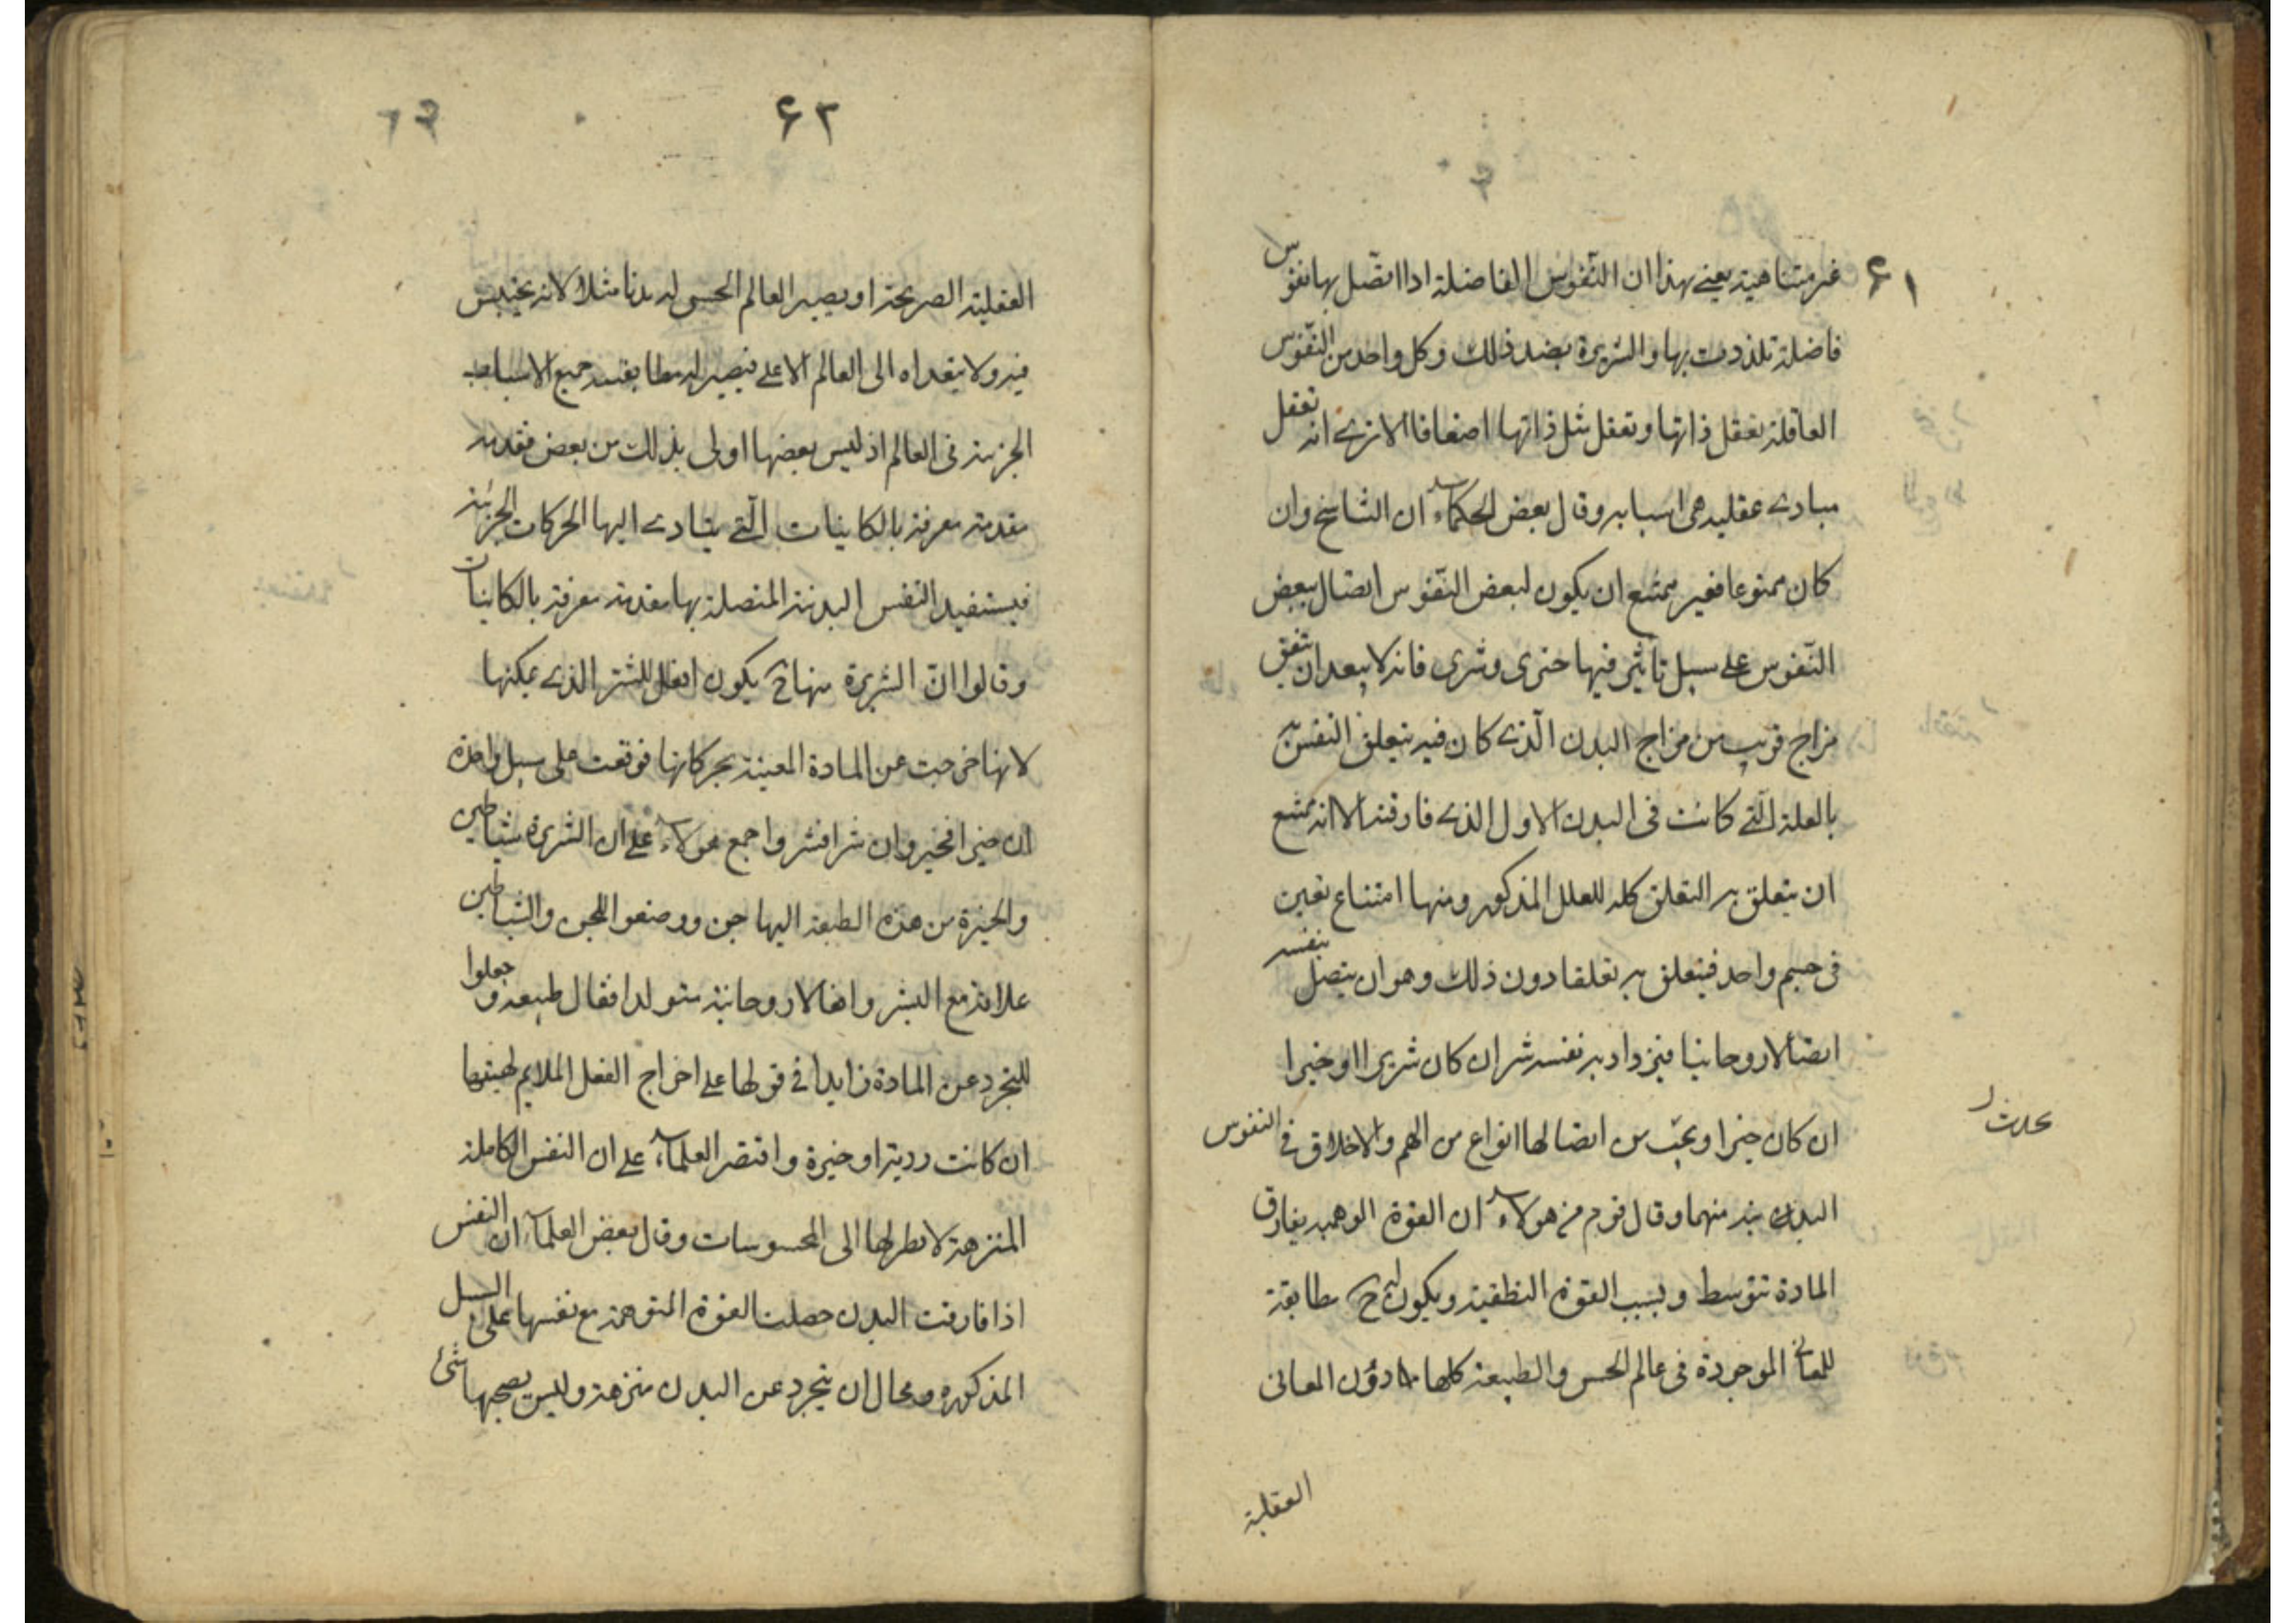 ٦١
غير متناهية يعنى بهذا ان النّفوس الفاضلة اذا اتصّل بها نفوس
فاضلة تلذذت بها والشريرة بضد ذلك وكل واحد من النّفوس
العاقلة تعقل ذاتها وتعقل مثل ذاتها اضعافا الا ترى انه تعقل
مبادى عقليه هى اسبابه وقال بعض الحكماء ان التناسخ وان
كان ممنوعا فغير ممتنع ان يكون لبعض النّفوس اتصال ببعض
النّفوس على سبيل تاثير فيها خيرى وشرى فانه لا يبعد ان يتفق
مزاج قريب من مزاج البدن الّذى كان فيه يتعلق النفس به
بالعلة الّتى كانت فى البدن الاول الذى فارقته الا انه يمتنع
ان يتعلق به التعلق كله للعلل المذكوره ومنها امتناع نفسين
فى جسم واحد فيتعلق به تعلقا دون ذلك وهو ان يتصل بنفسه
اتصالا روحانيا فيزداد به نفسه شرا ان كان شريرا او خيرا
ان كان خيرا ويجب من اتصالها انواع من الهم والاخلاق فى النفوس
يحدث
البدن منهما وقال قوم من هولاء ان القوة الوهميه يفارق
المادة بتوسط وبسبب القوة النطقية ويكون ح مطابقة
للمعانى الموجودة فى عالم الحس والطبيعة كلها دون المعانى
العقلية
٦٢
العقلية الصريحة او يصير العالم الحسى له بدنا مثلا لانه يحتبس
فيه ولا يتعداه الى العالم الاعلى فيصير له مطابقته جميع الاسباب
الجزئية فى العالم اذ ليس بعضها اولى بذلك من بعض فتقدمه
مقدمة معرفة بالكاينات الّتى يتادى اليها الحركات الجزئية
فيستفيد النفس البدنية المتصلة بها مقدمة معرفة بالكاينات
وقالوا انّ الشريرة منها ح يكون افعل للشر الذى يمكنها
لانها خرجت عن المادة المعينة بحركاتها فوقعت على سبيل واحدة
ان خيرا فخير وان شرا فشر واجمع هولاء على ان الشريرة شياطين
والخيرة من هذه الطبقة اليها جن ووصفوا للجن والشياطين
علاقة مع البشر وافعالا روحانية متولد افعال طبيعة وجعلوا
للتجرد عن المادة زايدا فى قولها على اخراج الفعل الملايم لهيئتها
ان كانت ردية او خيرة واقتصر العلماء على ان النفس الكاملة
المنزهة لا نظر لها الى المحسوسات وقال بعض العلماء ان النفس
اذا فارقت البدن حصلت القوة المتوهمة مع نفسها على السبيل
المذكوره ومحال ان يتجرد عن البدن منزهة وليس يصحبها شئ